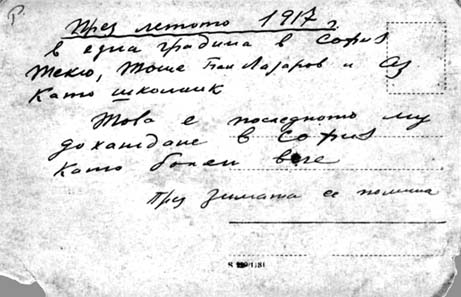 Р.
През летото 1917 г
в една градина в София
Теклю, Тоше Бай Лазаров и Аз
Като школник
Това е последното му
дохаждане в София
като болен вече
През зимата се помина